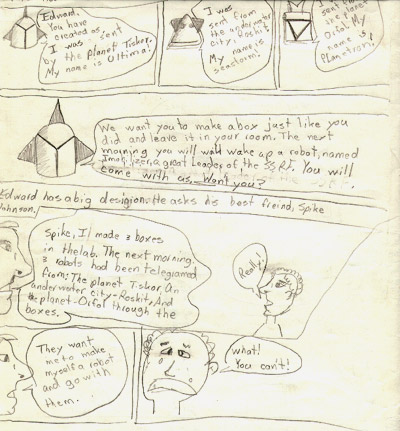 Edward.
You have
created us.
I was sent
by the planet Tiskor.
My name is Ultima!
I was
sent from
the underwater
city, Roskit
My name is
seastorm!
sent
the planet
Oifol My
name is
Planetron!
We want you to make a box just like you
did and leave it in your room. The next
morning you will wake up a robot, named
a great Leader of the You will
come with us. Won't you?
Edward has a big desigion. He asks his best freind, Spike
Johnson.
Spike, I made 3 boxes
in the lab. The next morning,
3 robots had been telegramed
from: The planet Tiskor An
underwater city-Roskit, And
the planet-Oifol through the
boxes.
Really!
They want
me to make
myself a robot
and go with
them.
what!
You can't!